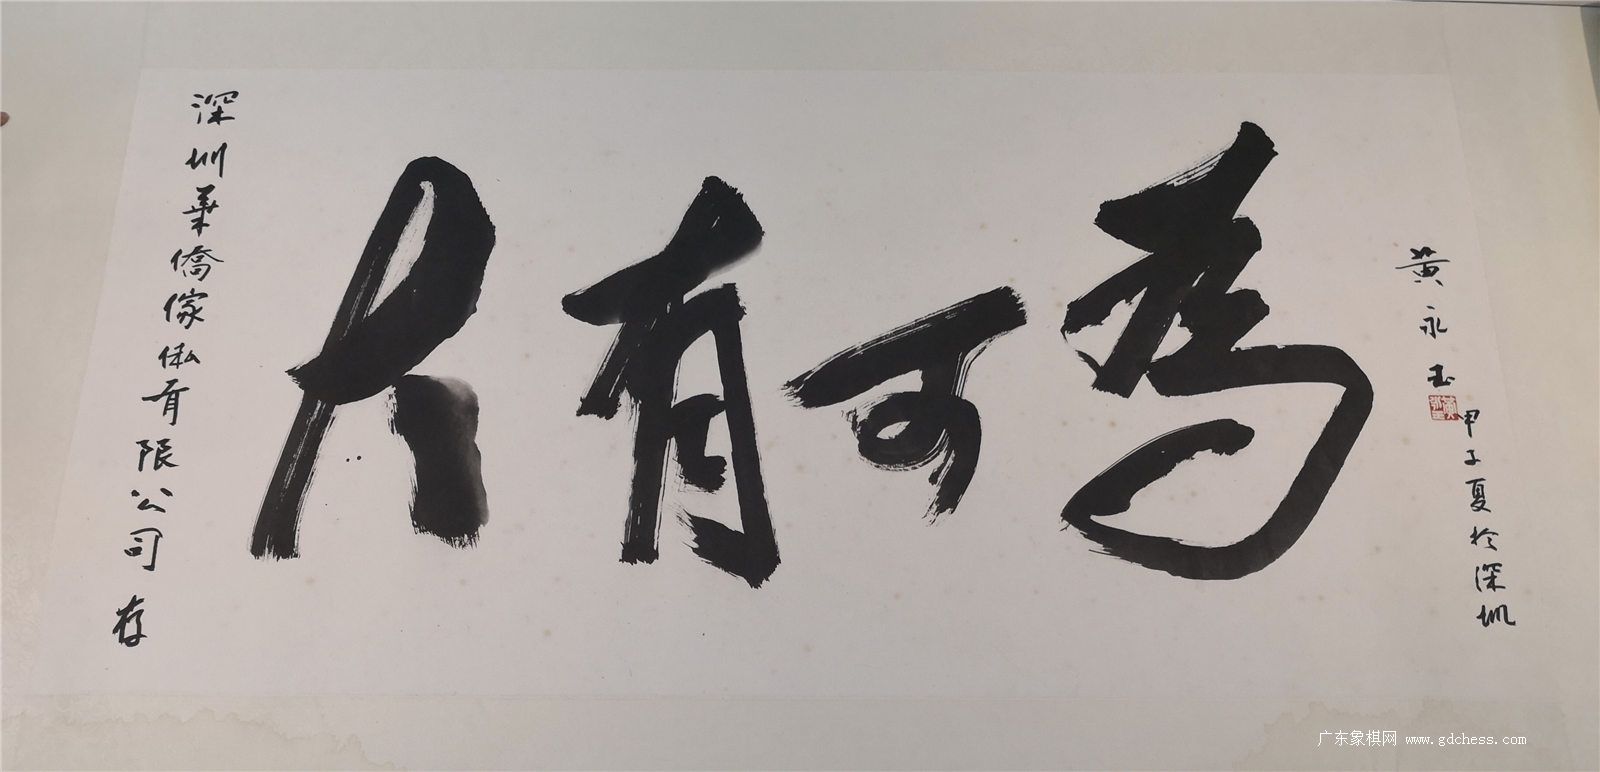 深圳華僑傢俬有限公司 存
大有可為
黄永玉
甲子夏於深圳
广东象棋网 www.gdchess.com